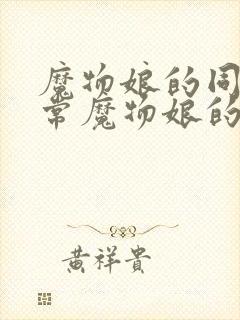 魔物娘的同
常魔物娘的
黄祥贵